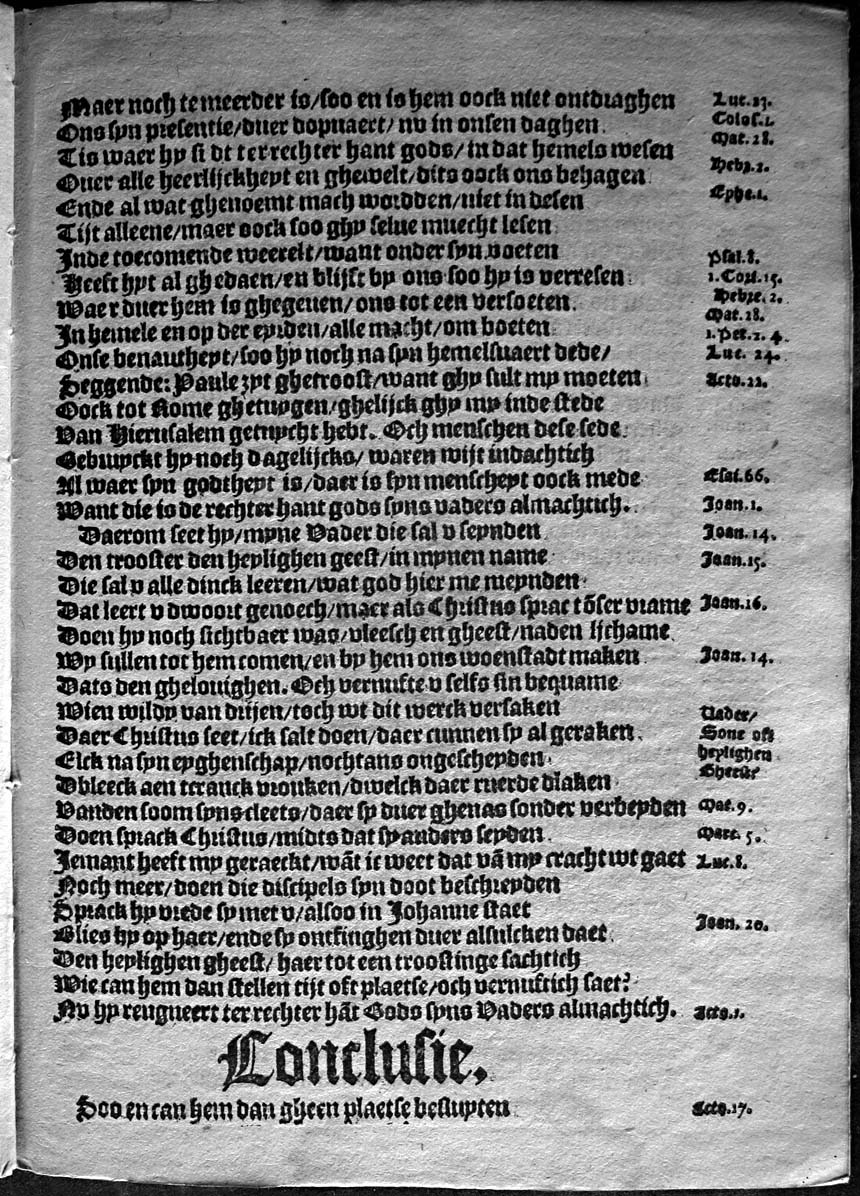 Maer noch te meerder is/soo en is hem oock niet ontdraghen Luc.23.
Ons syn presentie/duer dopuaert/nv in onsen daghen. Colos.1.
Tis waer hy sidt terrechter hant gods/in dat hemels wesen Mat.28.
Ouer alle heerlijckheyt en ghewelt/dits oock ons behagen Hebz.2.
Ende al wat ghenoemt mach wordden/niet in desen Ephe.1.
Tijt alleene/maer oock soo ghy selue muecht lesen
Inde toecomende weerelt/want onder syn voeten Psal.8.
Heeft hyt al ghedaen/en blijft by ons soo hy is verresen 1.Cori.15.
Waer duer hem is ghegeuen/ons tot een versoeten. Hebze.2.
In hemele en op der eyrden/alle macht/om boeten Mat.28.
Onse benautheyt/soo hy noch na syn hemelsuaert dede/ 1.Pet.2.4. Luc.24.
Seggende: Paule zyt ghetroost/want ghy sult my moeten Acto.22.
Oock tot Rome ghetuygen/ghelijck ghy my inde stede
Van Hierusalem getuycht hebt. Och menschen dese sede
Gebruyckt hy noch dagelijcks/waren wijt indachtich
Al waer syn godtheyt is/daer is syn menscheyt oock mede Esai.66.
Want die is de rechter hant gods syns vaders almachtich. Joan.1.
Daerom seet hy/myne Vader die sal v seynden Joan.14.
Den trooster den heylighen geest/in mynen name Joan.15.
Die sal v alle dinck leeren/wat god hier me meynden
Dat leert v dwoort genoech/maer als Christus sprac tōser vrame Joan.16.
Doen hy noch sichtbaer was/vleesch en gheest/naden lichame
Wy sullen tot hem comen/en by hem ons woenstadt maken Joan.14.
Dats den ghelouighen. Och vernufte v selfs sin bequame
Wien wildy van drijen/toch wt dit werck versaken Vader/
Daer Christus seet/ick salt doen/daer cunnen sy al geraken. Sone oft
Elck na syn eyghenschap/nochtans ongescheyden heylighen
Dbleeck aen tcranck vrouken/dwelck daer ruerde dlaken Gheest?
Vanden soom syns cleets/daer sy duer ghenas sonder verbeyden Mat.9.
Doen sprack Christus/midts dat sy anders seyden. Marc.5.
Jemant heeft my geraeckt/wāt ic weet dat vā my cracht wt gaet Luc.8.
Noch meer/doen die discipels syn doot beschreyden
Sprack hy vrede sy met v/alsoo in Johanne staet
Blies hy op haer/ende sy ontfinghen duer alsulcken daet Joan.20.
Den heylighen gheest/haer tot een troostinge sachtich
Wie can hem dan stellen tijt oft plaetse/och vernuftich saet?
Nv hy rengneert ter rechter hāt Gods syns Vaders almachtich. Acto.1.
Conclusie.
Soo en can hem dan gheen plaetse besluyten Acto.17.